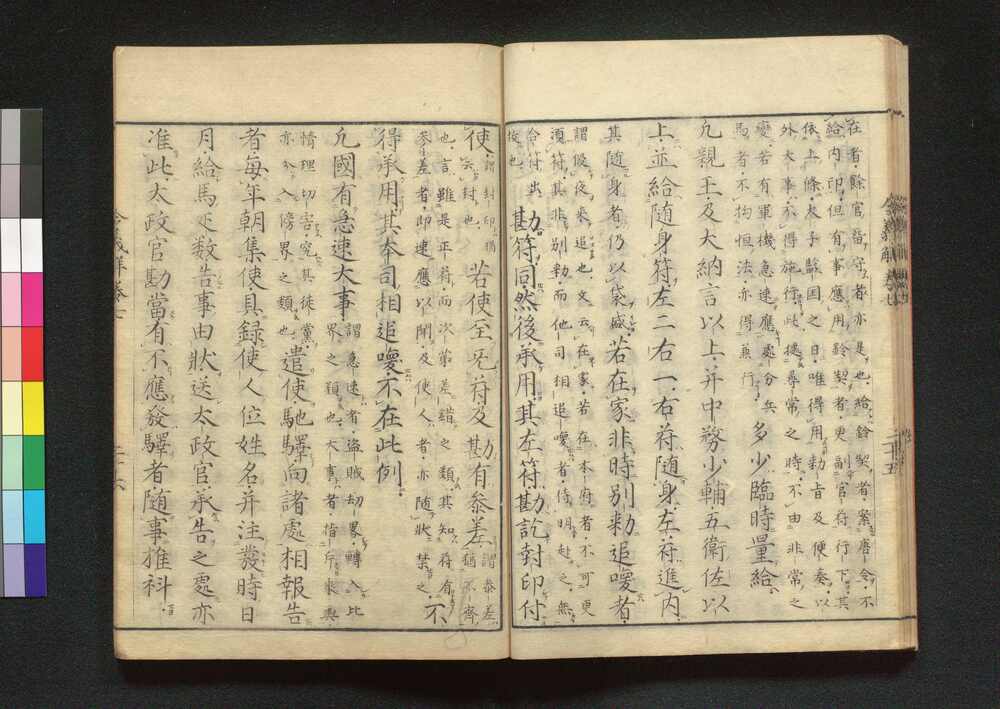 在者、餘官留守者亦是也、給鈴契者、案唐令、不
給内印、但有事應用鈴契者、更副官符行下、其
依上條、太子監国之日、唯得用勅旨及便奏、以
外大事、不得施行、此據尋常之時、不由非常之
變、若有軍機急速應處分兵
馬者、不拘恒法、亦得兼行、
多少臨時量給
凢親王及大納言以上、并中務少輔、五衛佐以
上、並給随身符、左二右一、右符随身、左符進内、
其随身者、仍以袋盛、若在家非時別勅追喚者、
謂假夜来追也、文云在家、若在本府者、不可更
須符、其非別勅、而他司相追喚者、待明赴之、無
合符出
按也、
勘符同、然後承用、其左符勘訖封印付
使、
謂封印猶
云封也、
若使至旡符、及勘有參差、
謂參差、
猶不齊
也、言雖是正符、而次第差錯之類、其知符有
參差者、即速應以聞、及使人者、亦随状禁之、
不
得承用、其本司相追喚、不在此例、
凢國有急速大事、
謂急速者、盗賊劫畧、轉入比
界之類也、大事者、指斥乗輿、
情理切害、究其徒黨、
亦令入傍界之類也、
遣使馳驛、向諸處相報告
者、毎年朝集使具録使人位姓名、并注發時日
月給馬疋数、告事由状、送太政官、承告之處亦
准此、太政官勘當、有不應發驛者、随事推科、
令義解巻七
二十五